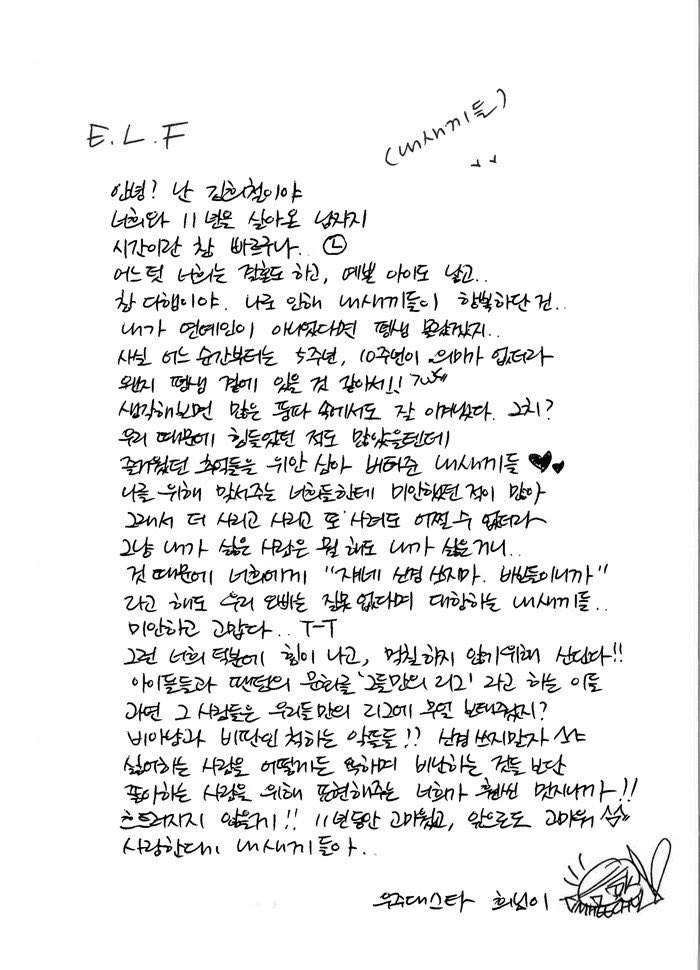 E.L.F
(내새끼들)
안녕? 난 김희철이야
너희와 11년을 살아온 남자지
시간이란 참 빠르구나..
어느덧 너희는 결혼도 하고, 예쁜 아이도 낳고..
참 다행이야. 나로 인해 내새끼들이 행복하단 건..
내가 연예인이 아니었다면 평생 몰랐겠지..
사실 어느 순간부터는 5주년, 10주년이 의미가 없더라
왠지 평생 곁에 있을 것 같아서!!
생각해보면 많은 풍파 속에서도 잘 이겨냈다. 그치?
우리 때문에 힘들었던 적도 많았을텐데
즐거웠던 추억들을 위안 삼아 버텨준 내새끼들 ♥♥
나를 위해 맞서주는 너희들한테 미안했던 적이 많아
그래서 더 사리고 사리고 또 사려도 어쩔 수 없더라
그냥 내가 싫은 사람은 뭘 해도 내가 싫은거니..
것 때문에 너희에게 "쟤네 신경 쓰지마. 바보들이니까"
라고 해도 우리 오빠는 잘못 없다며 대항하는 내새끼들..
미안하고 고맙다.. T-T
그런 너희 덕분에 힘이 나고, 먹칠하지 않기위해 산단다!!
아이돌들과 팬덤의 문화를 '그들만의 리그' 라고 하는 이들
과연 그 사람들은 우리들만의 리그에 무얼 보태주었지?
비아냥과 비판인 척하는 악플들!! 신경 쓰지말자
싫어하는 사람을 어떻게든 욕하며 비난하는 것들 보단
좋아하는 사람을 위해 표현해주는 너희가 훨씬 멋지니까!!
흐트러지지 않을게!! 11년동안 고마웠고, 앞으로도 고마워
사랑한다 내새끼들아..
우주대스타 희님이